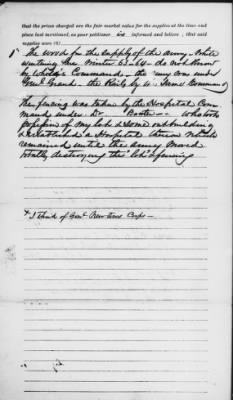 that the prices charged are the fair market value for the supplies at the time and
place last mentioned, as your petitioner, is informed and believes; that said
supplies were (6)
1st The wood for the supply of the army while
wintering here Winter 63-64 - do not know
by Whose Command - the army was under
Genl Grand - the Rails by Same Command
The fencing was taken by the Hospital Com
mand under Dr who took
of my lot & Some outbuilding
& established a Hospital which
remained until the army Moved
totally destroying the "lot" & fencing
I think of Genl Corps -